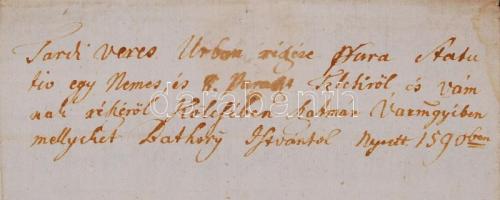 Tardi veres Urban részére Statu
tio egy Nemes és Paraszt Telekről és vám
nak részéről Kölcsében Szatmar Varmegyiben
mellyeket Bathory Istvántól Nyertt 1590ben